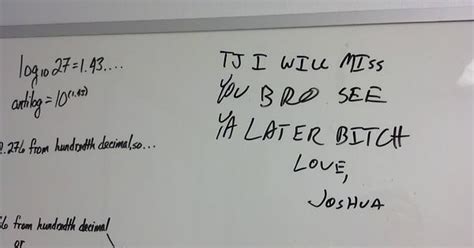 log10 27=1.43....
antilog=10(1.43)
.276 from hundredth decimal,so...
from hundredth decimal
or
TJ I WILL MISS
YOU BRO SEE
YA LATER BITCH
LOVE,
JOSHUA